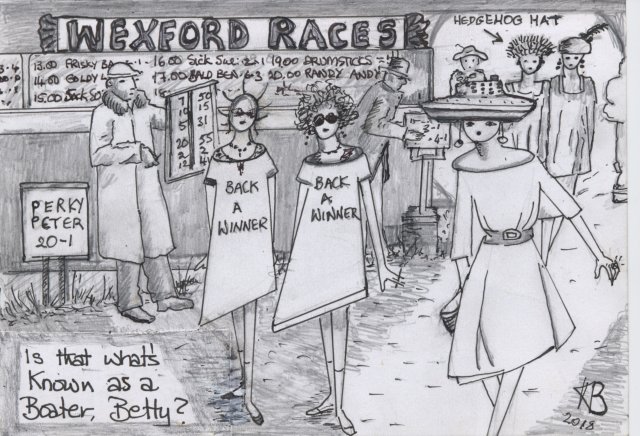 WEXFORD RACES
HEDGEHOG HAT
13.00 FRISKY
16.00 SICK SUE 2-1
19.00 DRUMSTICKS
14.00 GOLDY
17.00 BALD BEA 6-3
20.00 RANDY ANDY
15.00
50
10 15
5 31
20 55
2 2
PERKY
PETER
20-1
BACK
A
WINNER
BACK
A
WINNER
Is that what's
Known as a
Boater, Betty?
KB
2018